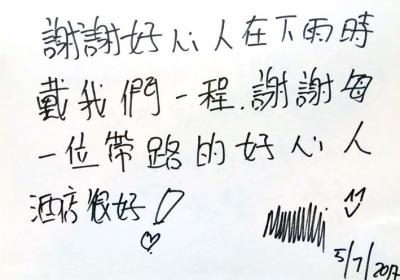 謝謝好心人在下雨時
戴我們一程.謝謝每
一位帶路的好心人
酒店很好!
5/7/2017